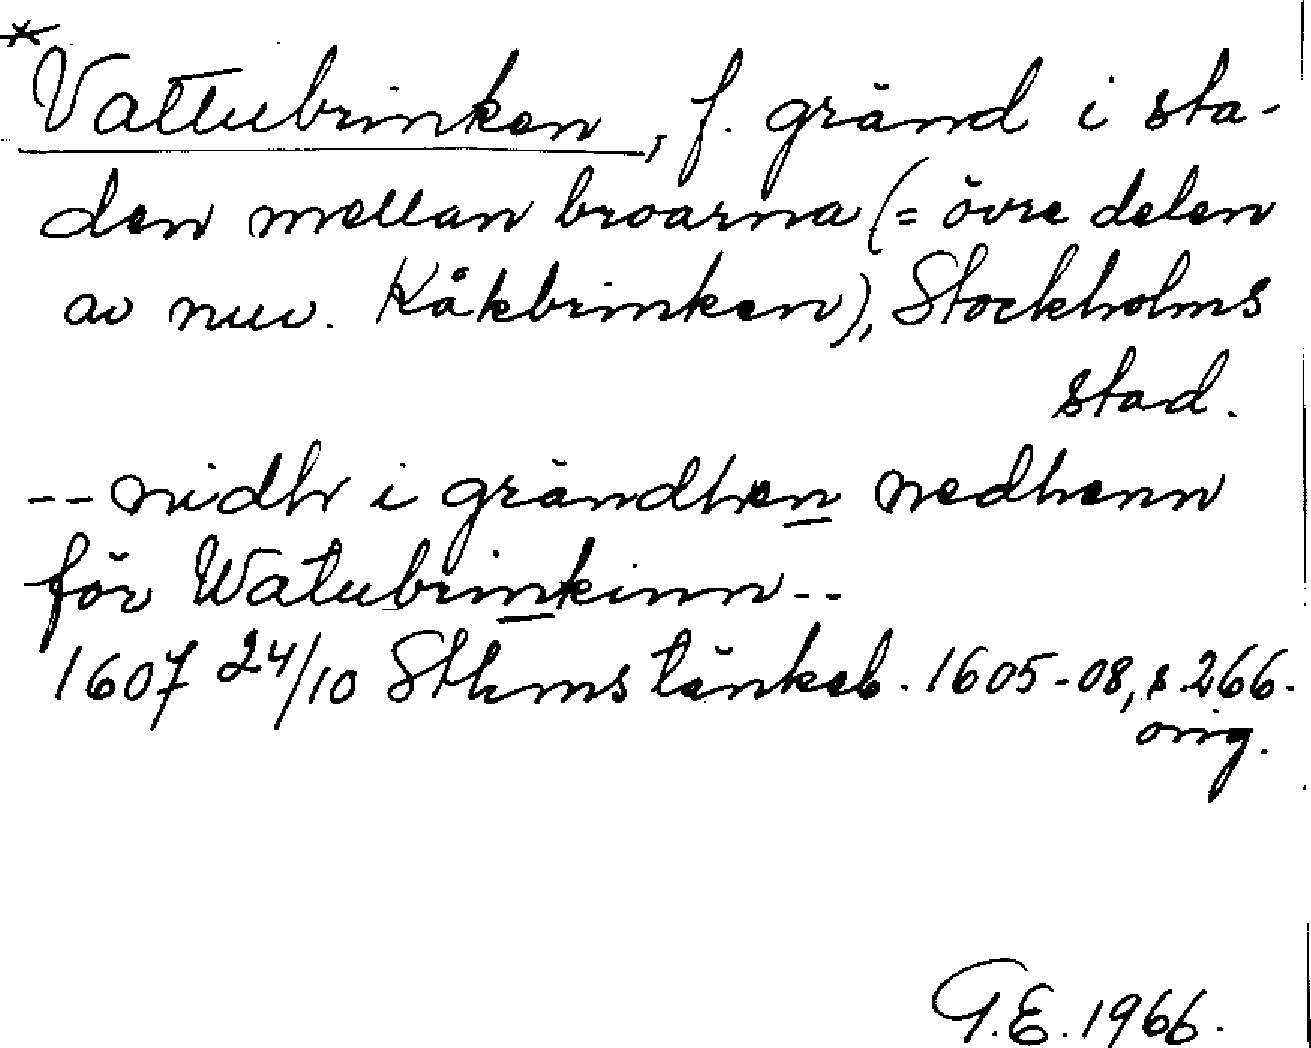 *Vattubrinken, f. gränd i sta-
den mellan broarna (= övre delen
av nuv. Kåkbrinken), Stockholms
stad.
-- nidhr i grändhen nedhenn
för Watubrinkinn --
1607 24/10 Sthms tänkeb. 1605-08, s. 266.
orig.
G.E. 1966.